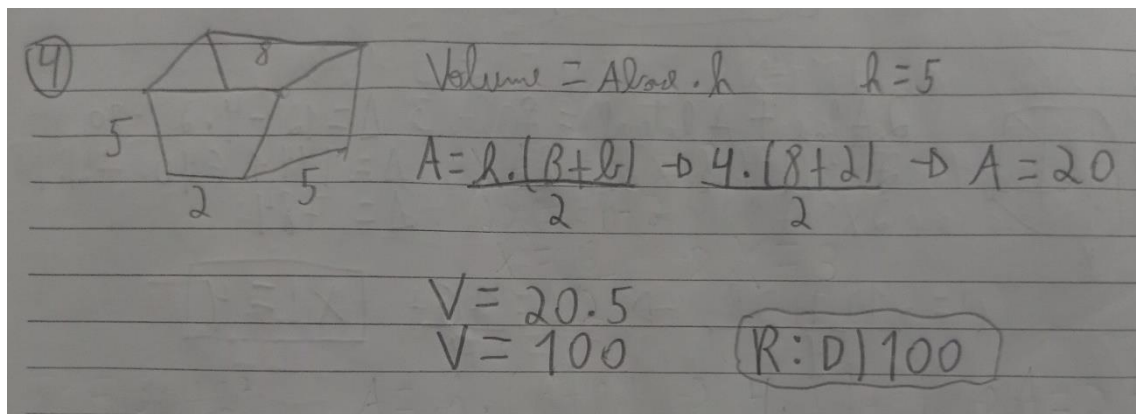 4
8
5
2
5
Volume = Abase . h h = 5
A = h.(B+b) → 4.(8+2) → A = 20
2 2
V = 20.5
V = 100
R: D) 100